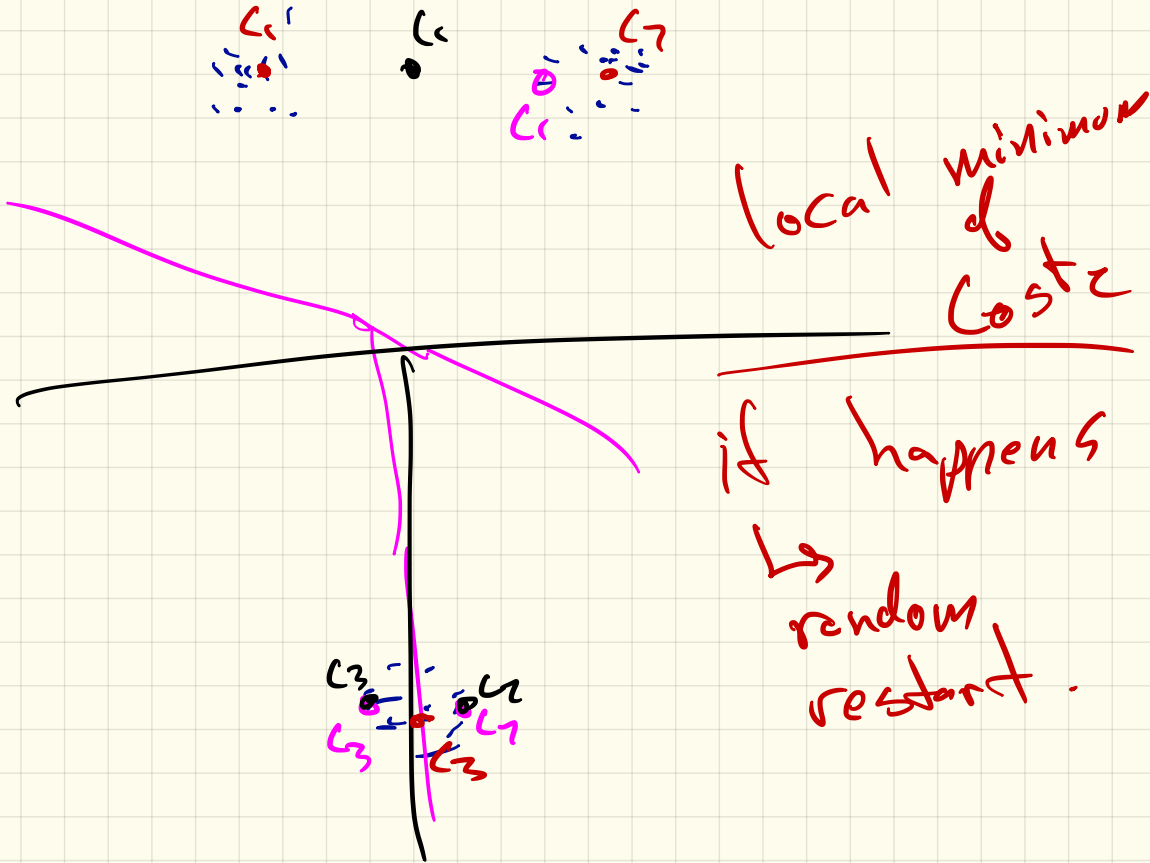 C1
C1
C2
C1
local minimum
of
Cost
if happens
↳ random
restart.
C3
C2
C3
C2
C3